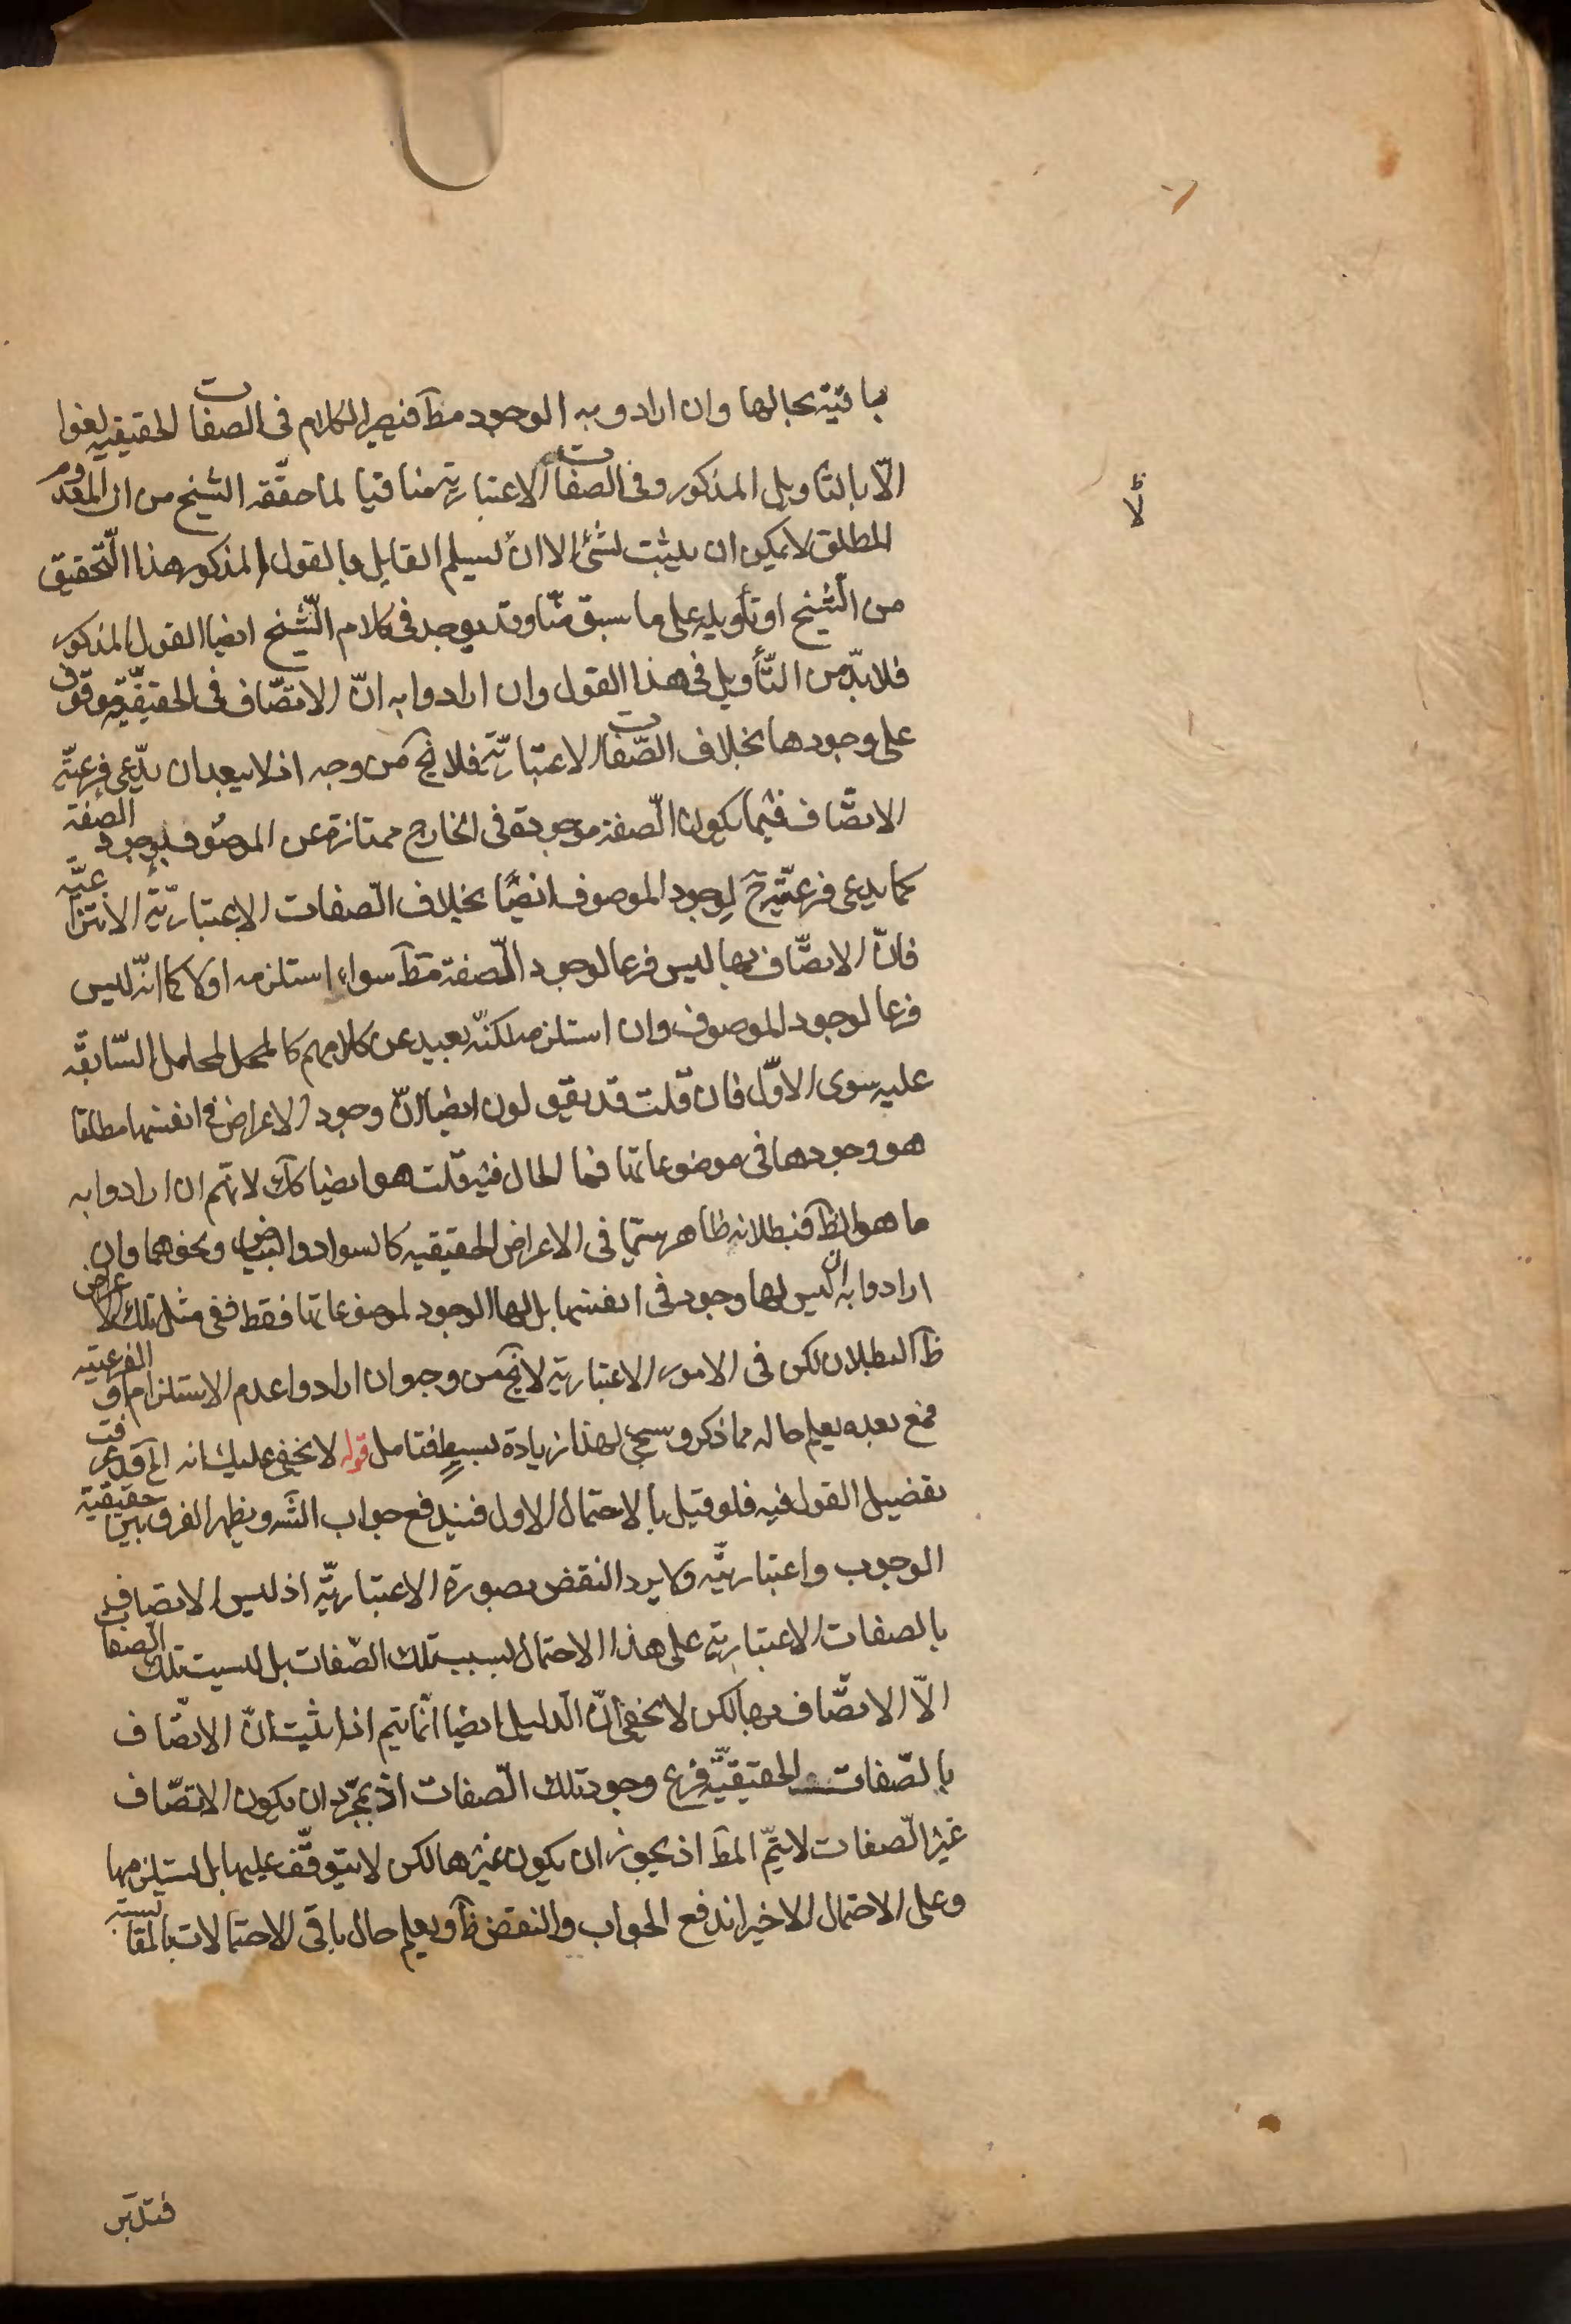 باقية بحالها وان ارادو به الوجود مطآ فيصير الكلام فى الصفات الحقيقيه لغوا
الّا بالتأويل المذكور وفى الصفات الاعتباريّة منافيا لما حقّقه الشيخ من ان المعدوم
المطلق لا يمكن ان يثبت لشئ الا ان لا يسلم القايل بالقول المذكور هذا التّحقيق
من الشّيخ او تأويله على ما سبق منّا وقد يوجد فى كلام الشّيخ ايضا القول المذكور
فلا بدّ من التّأويل فى هذا القول وان ارادوا به انّ الاتّصاف فى الحقيقيّة موقوف
على وجودها بخلاف الصّفات الاعتباريّة فلا يخ من وجه اذ لا يبعد ان يدّعى فرعيّة
الاتّصاف فيما يكون الصّفة موجودة فى الخارج ممتازة عن الموصوف بوجود الصّفة
كما يدعى فرعيّته ح لوجود الموصوف ايضًا بخلاف الصّفات الاعتباريّة الانتزاعيّة
فانّ الاتصّاف بها ليس فرعا لوجود الصّفة مطآ سواء استلزمه اولا كما انّه ليس
فرعا لوجود الموصوف وان استلزمه لكنّه بعيد عن كلامهم كالحمل لمحامل السّابقة
عليه سوى الاوّل فان قلت قد يقولون ايضا انّ وجود الاعراض فى انفسها مطلقا
هو وجودها فى موضوعاتها فما الحال فيه قلت هو ايضا كآك لانّهم ان ارادوا به
ما هو الظآ فبطلانه ظاهر سيّما فى الاعراض الحقيقيه كالسواد والبياض ونحوهما وان
ارادوا به ان ليس لها وجود فى انفسها بل لها الوجود لموضوعاتها فقط ففى مثل تلك الاعراض
ظآ البطلان لكن فى الامور الاعتبارية لا يخ من وجه وان ارادوا عدم الاستلزام او الفرعية
فمع بعده يعلم حاله مما ذكر وسيجئ لهذا زيادة بسط فتامل قوله لا يخفى عليك انه الخ قد عرفت
تفضيل القول فيه فلو قيل بالاحتمال الاول فيندفع جواب الشّ ويظهر الفرق بين حقيقية
الوجوب واعتباريّته ولا يرد النقض بصورة الاعتباريّة اذ ليس الاتصاف
بالصفات الاعتبارية على هذا الاحتمال بسبب تلك الصّفات بل ليست تلك الصّفات
الّا الاتصّاف بها لكن لا يخفى انّ الدليل ايضا انّما يتم اذا يثبت انّ الاتصّاف
بالصّفات الحقيقيّة فرع وجود تلك الصّفات اذ بمجرّد ان يكون الاتصّاف
غير الصّفات لا يتمّ المطآ اذ يجوز ان يكون غيرها لكن لا يتوقّف عليها بل يستلزمها
وعلى الاحتمال الاخير اندفع الجواب والنقض ظآ ويعلم حال باقى الاحتمالات بالمقايسة
فتدبّر